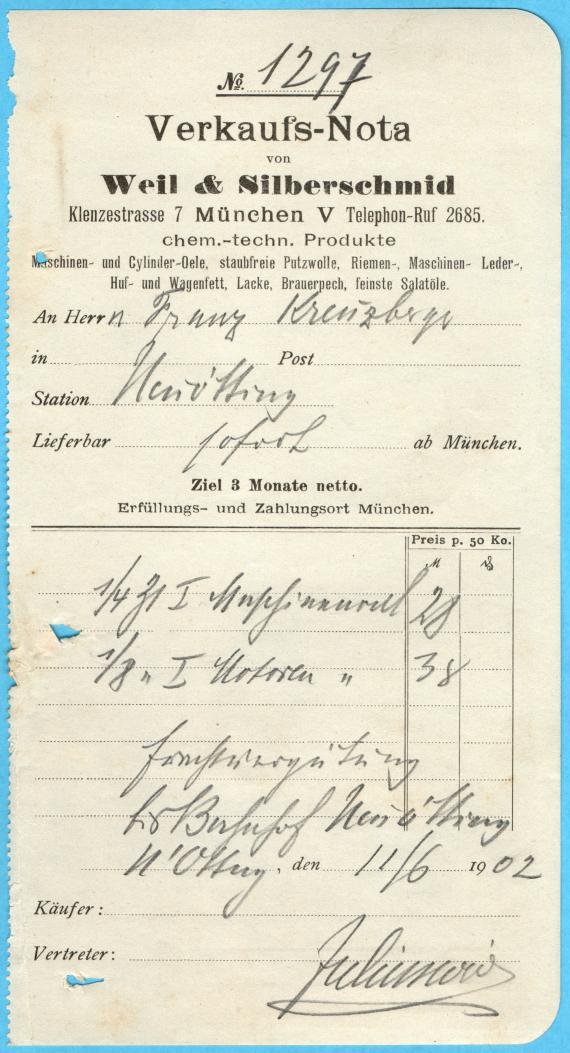 No. 1297
Verkaufs-Nota
von
Weil & Silberschmid
Klenzestrasse 7 München V Telephon-Ruf 2685.
chem.-techn. Produkte
Maschinen- und Cylinder-Oele, staubfreie Putzwolle, Riemen-, Maschinen- Leder-,
Huf- und Wagenfett, Lacke, Brauerpech, feinste Salatöle.
An Herrn Franz
in Post
Station Neuötting
Lieferbar sofort ab München.
Ziel 3 Monate netto.
Erfüllungs- und Zahlungsort München.
Preis p. 50 Ko.
M ₰
1/4 I 28
1/8 " I Motoren " 38
Frachtvergütung
bis Bahnhof Neuötting
N'Ötting, den 11/6 1902
Käufer:
Vertreter: